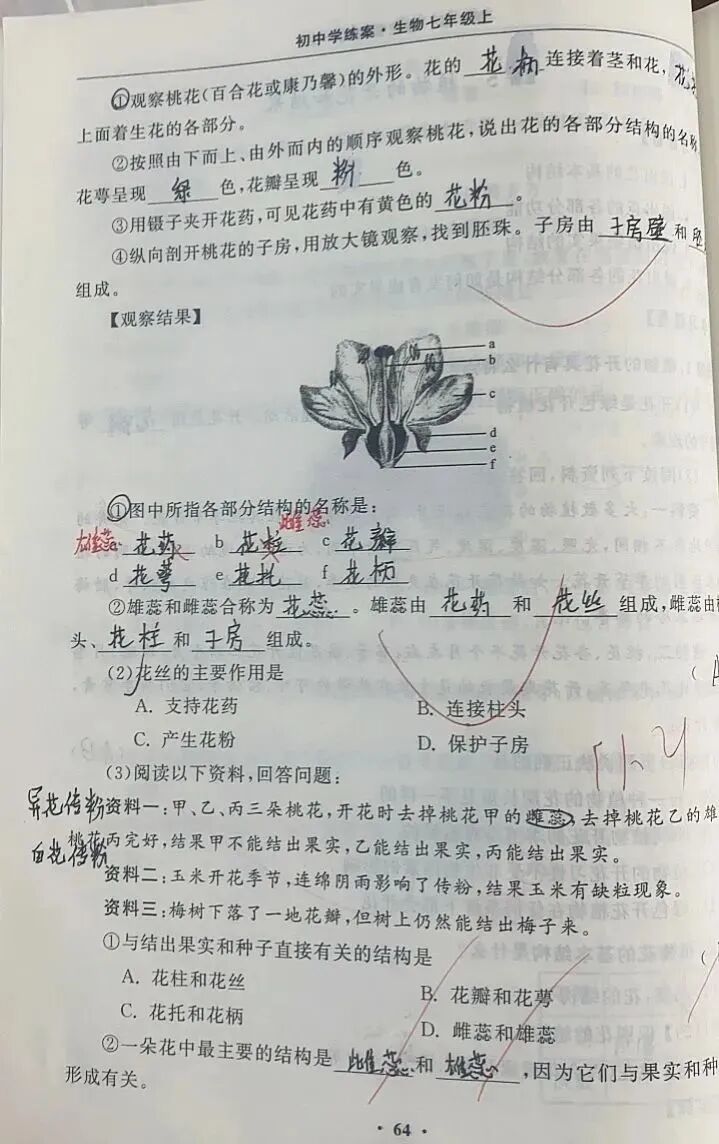 初中学练案·生物七年级上
①观察桃花(百合花或康乃馨)的外形。花的 花柄 连接着茎和花, 花
上面着生花的各部分。
②按照由下而上、由外而内的顺序观察桃花,说出花的各部分结构的名称
花萼呈现 绿 色,花瓣呈现 粉 色。
③用镊子夹开花药,可见花药中有黄色的 花粉 。
④纵向剖开桃花的子房,用放大镜观察,找到胚珠。子房由 子房壁 和 胚
组成。
【观察结果】
a
b
c
d
e
f
①图中所指各部分结构的名称是:
雌蕊
雄蕊 a 花药 b 花柱 c 花瓣
d 花萼 e 花托 f 花柄
②雄蕊和雌蕊合称为 花蕊 。雄蕊由 花药 和 花丝 组成,雌蕊由
头、 花柱 和 子房 组成。
(2)花丝的主要作用是 ( A
A. 支持花药 B. 连接柱头
C. 产生花粉 D. 保护子房
(3)阅读以下资料,回答问题:
异花传粉 资料一:甲、乙、丙三朵桃花,开花时去掉桃花甲的雌蕊,去掉桃花乙的雄
自花传粉 桃花丙完好,结果甲不能结出果实,乙能结出果实,丙能结出果实。
资料二:玉米开花季节,连绵阴雨影响了传粉,结果玉米有缺粒现象。
资料三:梅树下落了一地花瓣,但树上仍然能结出梅子来。
①与结出果实和种子直接有关的结构是 (
A. 花柱和花丝 B. 花瓣和花萼
C. 花托和花柄 D. 雌蕊和雄蕊
②一朵花中最主要的结构是 雌蕊 和 雄蕊 ,因为它们与果实和种
形成有关。
·64·